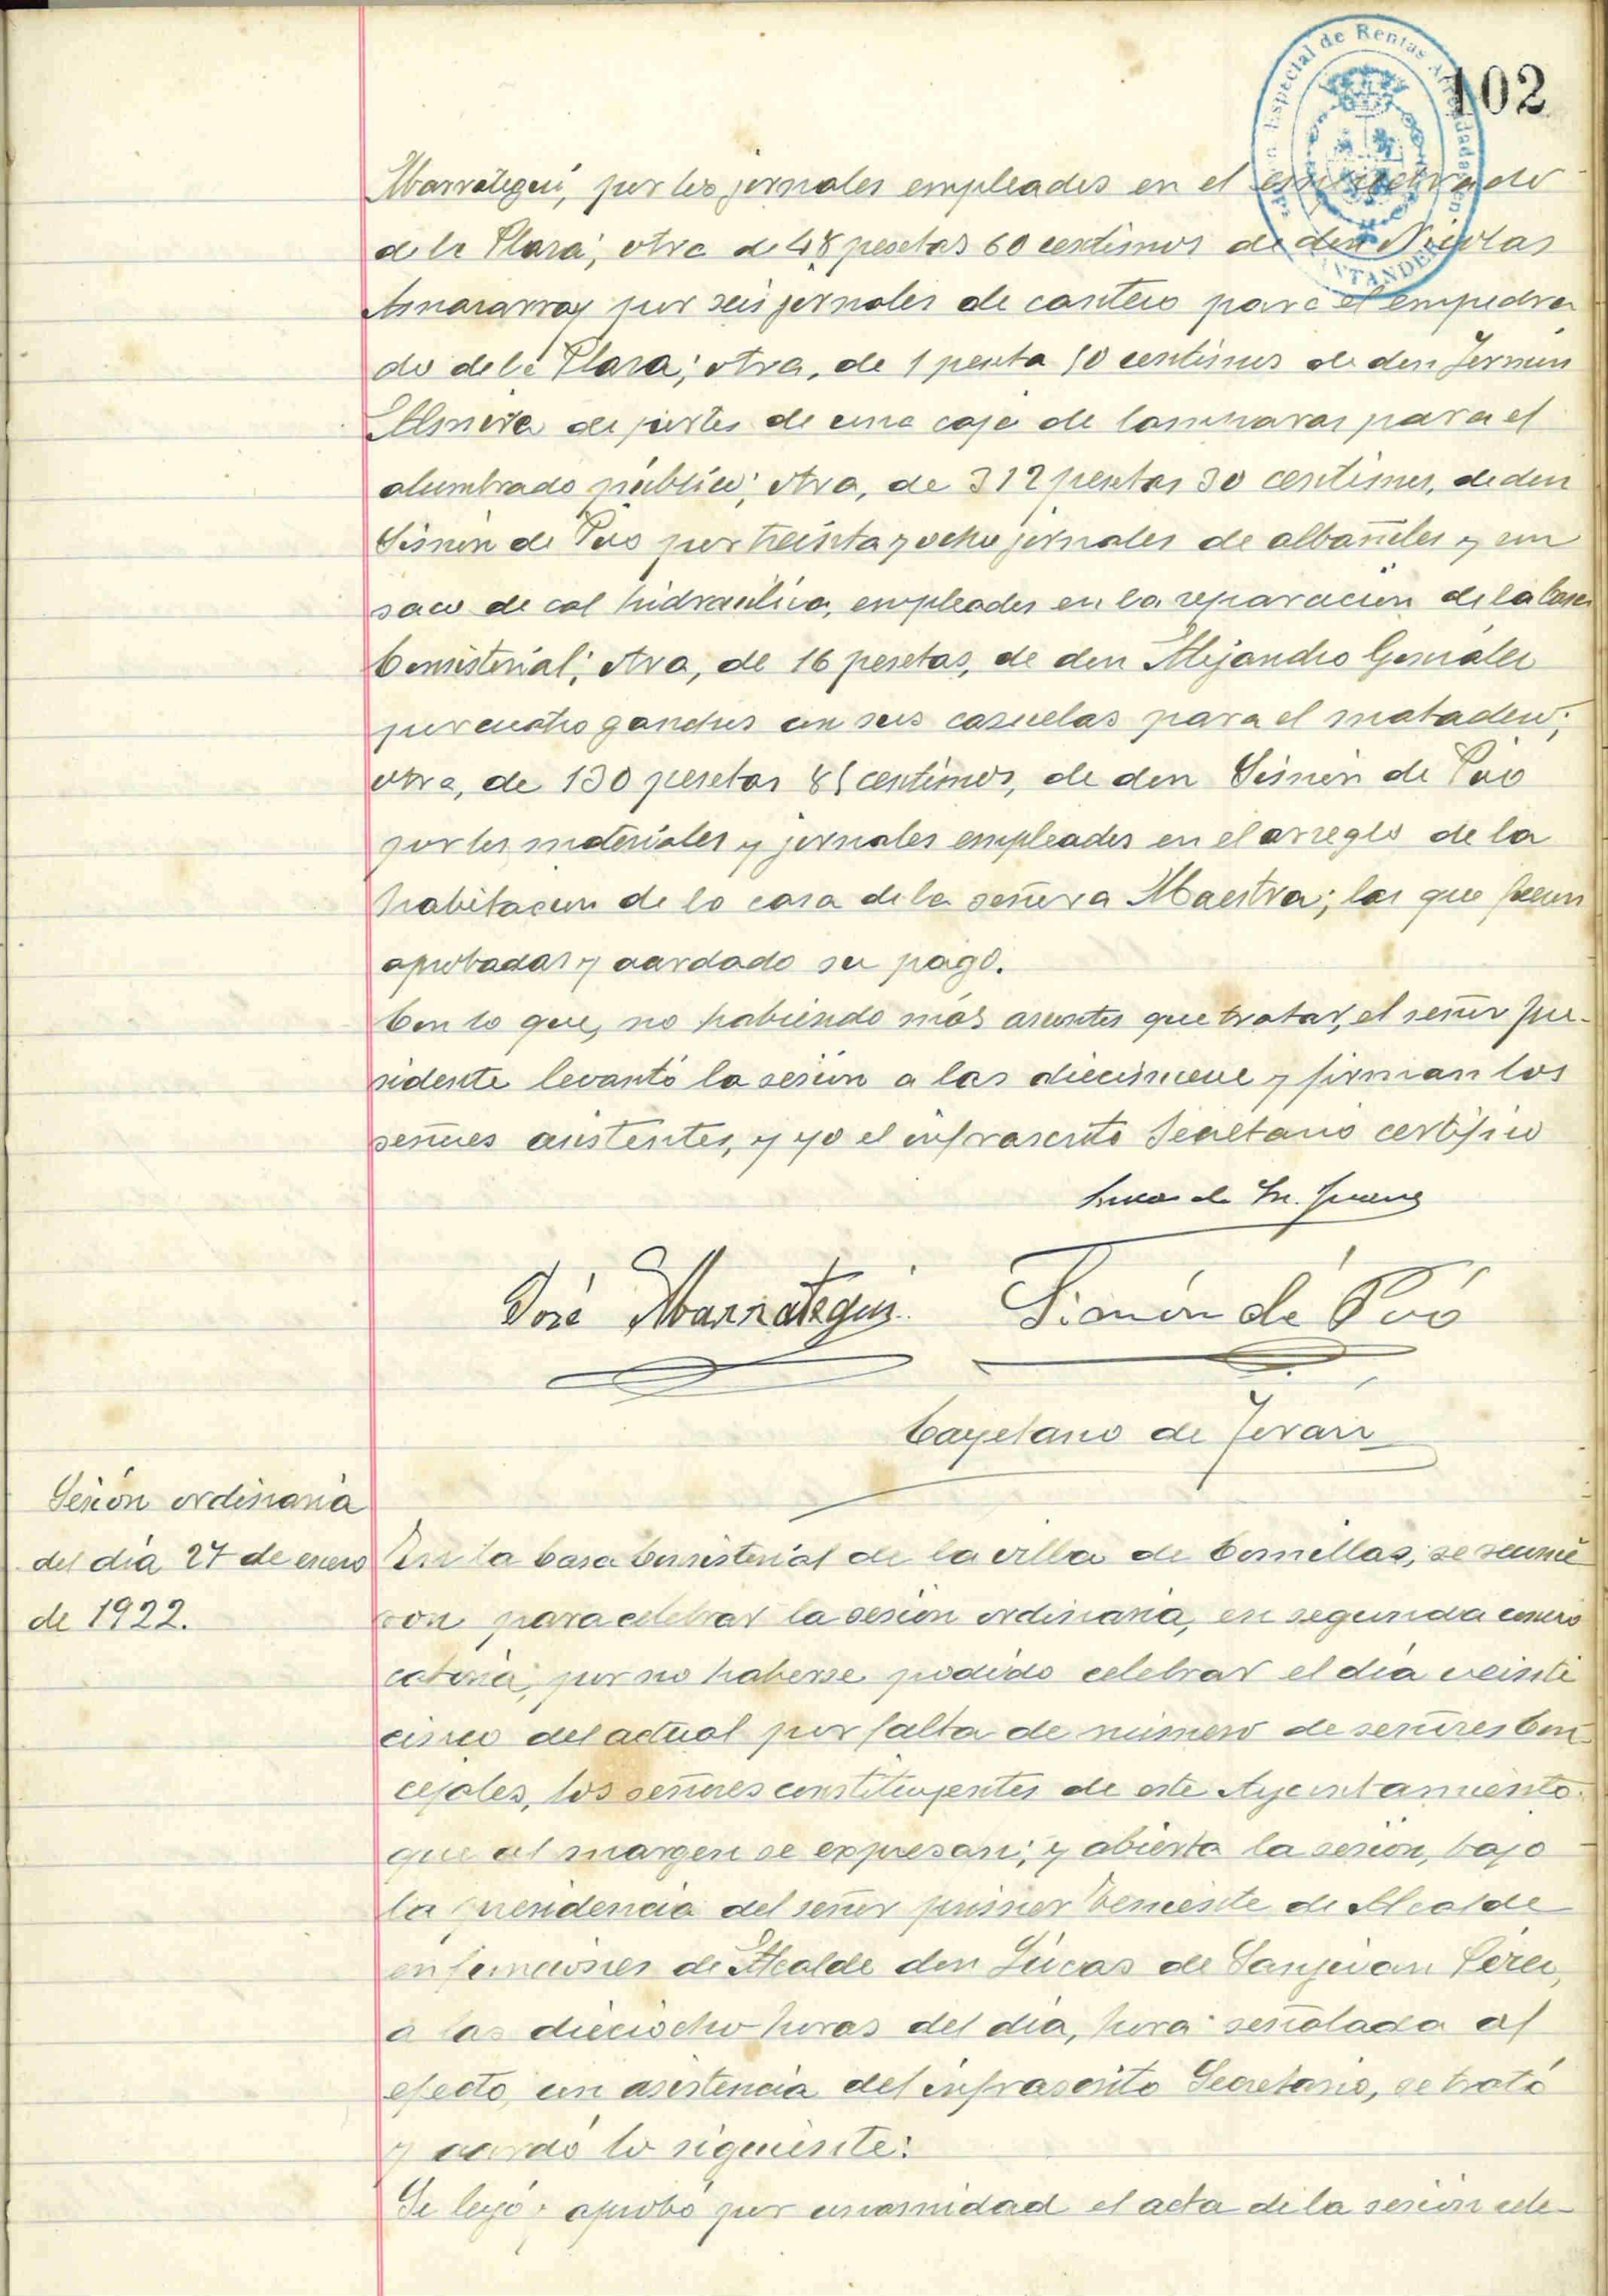 102
Especial de Rentas Arrendadas en
SANTANDER
Abarrategui, por los jornales empleados en el empedrado
de la Plaza; otra de 48 pesetas 60 centimos de don Nicolas
por seis jornales de cantero para el empedra
do de la Plaza; otra, de 1 peseta 50 centimos de don Fermin
de portes de una caja de lamparas para el
alumbrado público; otra, de 312 pesetas 30 centimos, de don
Simón de Poo por treinta y ocho jornales de albañiles y un
saco de cal hidraulica, empleados en la reparación de la Casa
Consistorial; otra, de 16 pesetas, de don Alejandro Gonzalez
por cuatro ganchos con sus cazuelas para el matadero;
otra, de 130 pesetas 85 centimos, de don Simón de Poo
por los materiales y jornales empleados en el arreglo de la
habitacion de la casa de la señora Maestra; las que fueron
aprobadas y acordado su pago.
Con lo que, no habiendo más asuntos que tratar, el señor pre-
sidente levantó la sesión a las diecinueve y firman los
señores asistentes, y yo el infrascrito Secretario certifico
Lucas de Sn. Juan
José Abarrategui Simón de Poó
Cayetano de Terán
Sesión ordinaria
del día 27 de enero
de 1922.
En la Casa Consistorial de la villa de Comillas, se reunie
ron para celebrar la sesión ordinaria, en segunda convo
catoria, por no haberse podido celebrar el día veinti
cinco del actual por falta de número de señores Con-
cejales, los señores constituyentes de este Ayuntamiento
que al margen se expresan; y abierta la sesión, bajo
la presidencia del señor primer Teniente de Alcalde
en funciones de Alcalde don Lucas de Sanjuan Pérez,
a las dieciocho horas del día, hora señalada al
efecto, con asistencia del infrascrito Secretario, se trató
y acordó lo siguiente:
Se leyó y aprobó por unanimidad el acta de la sesión cele-